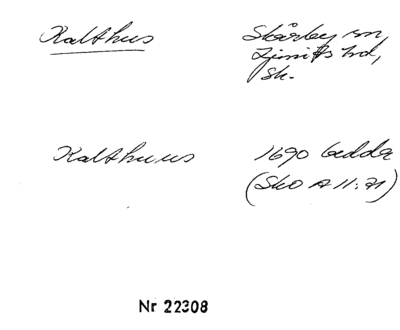 Kalthus Skårby sn,
Ljunits hd,
Sk.
Kalthuus 1690 Gedda
(SkO A II:71)
Nr 22308